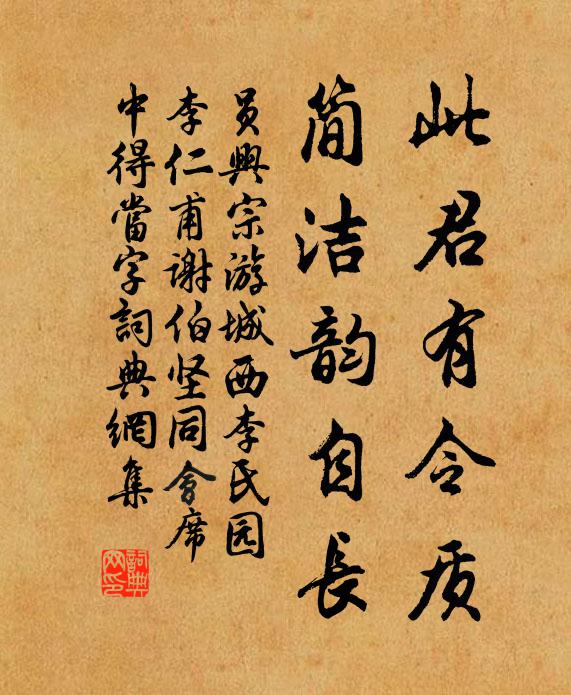 此君有令质
简洁韵自長
员興宗游城西李氏园
李仁甫谢伯坚同會席
中得當字詞典網集
詞典网印